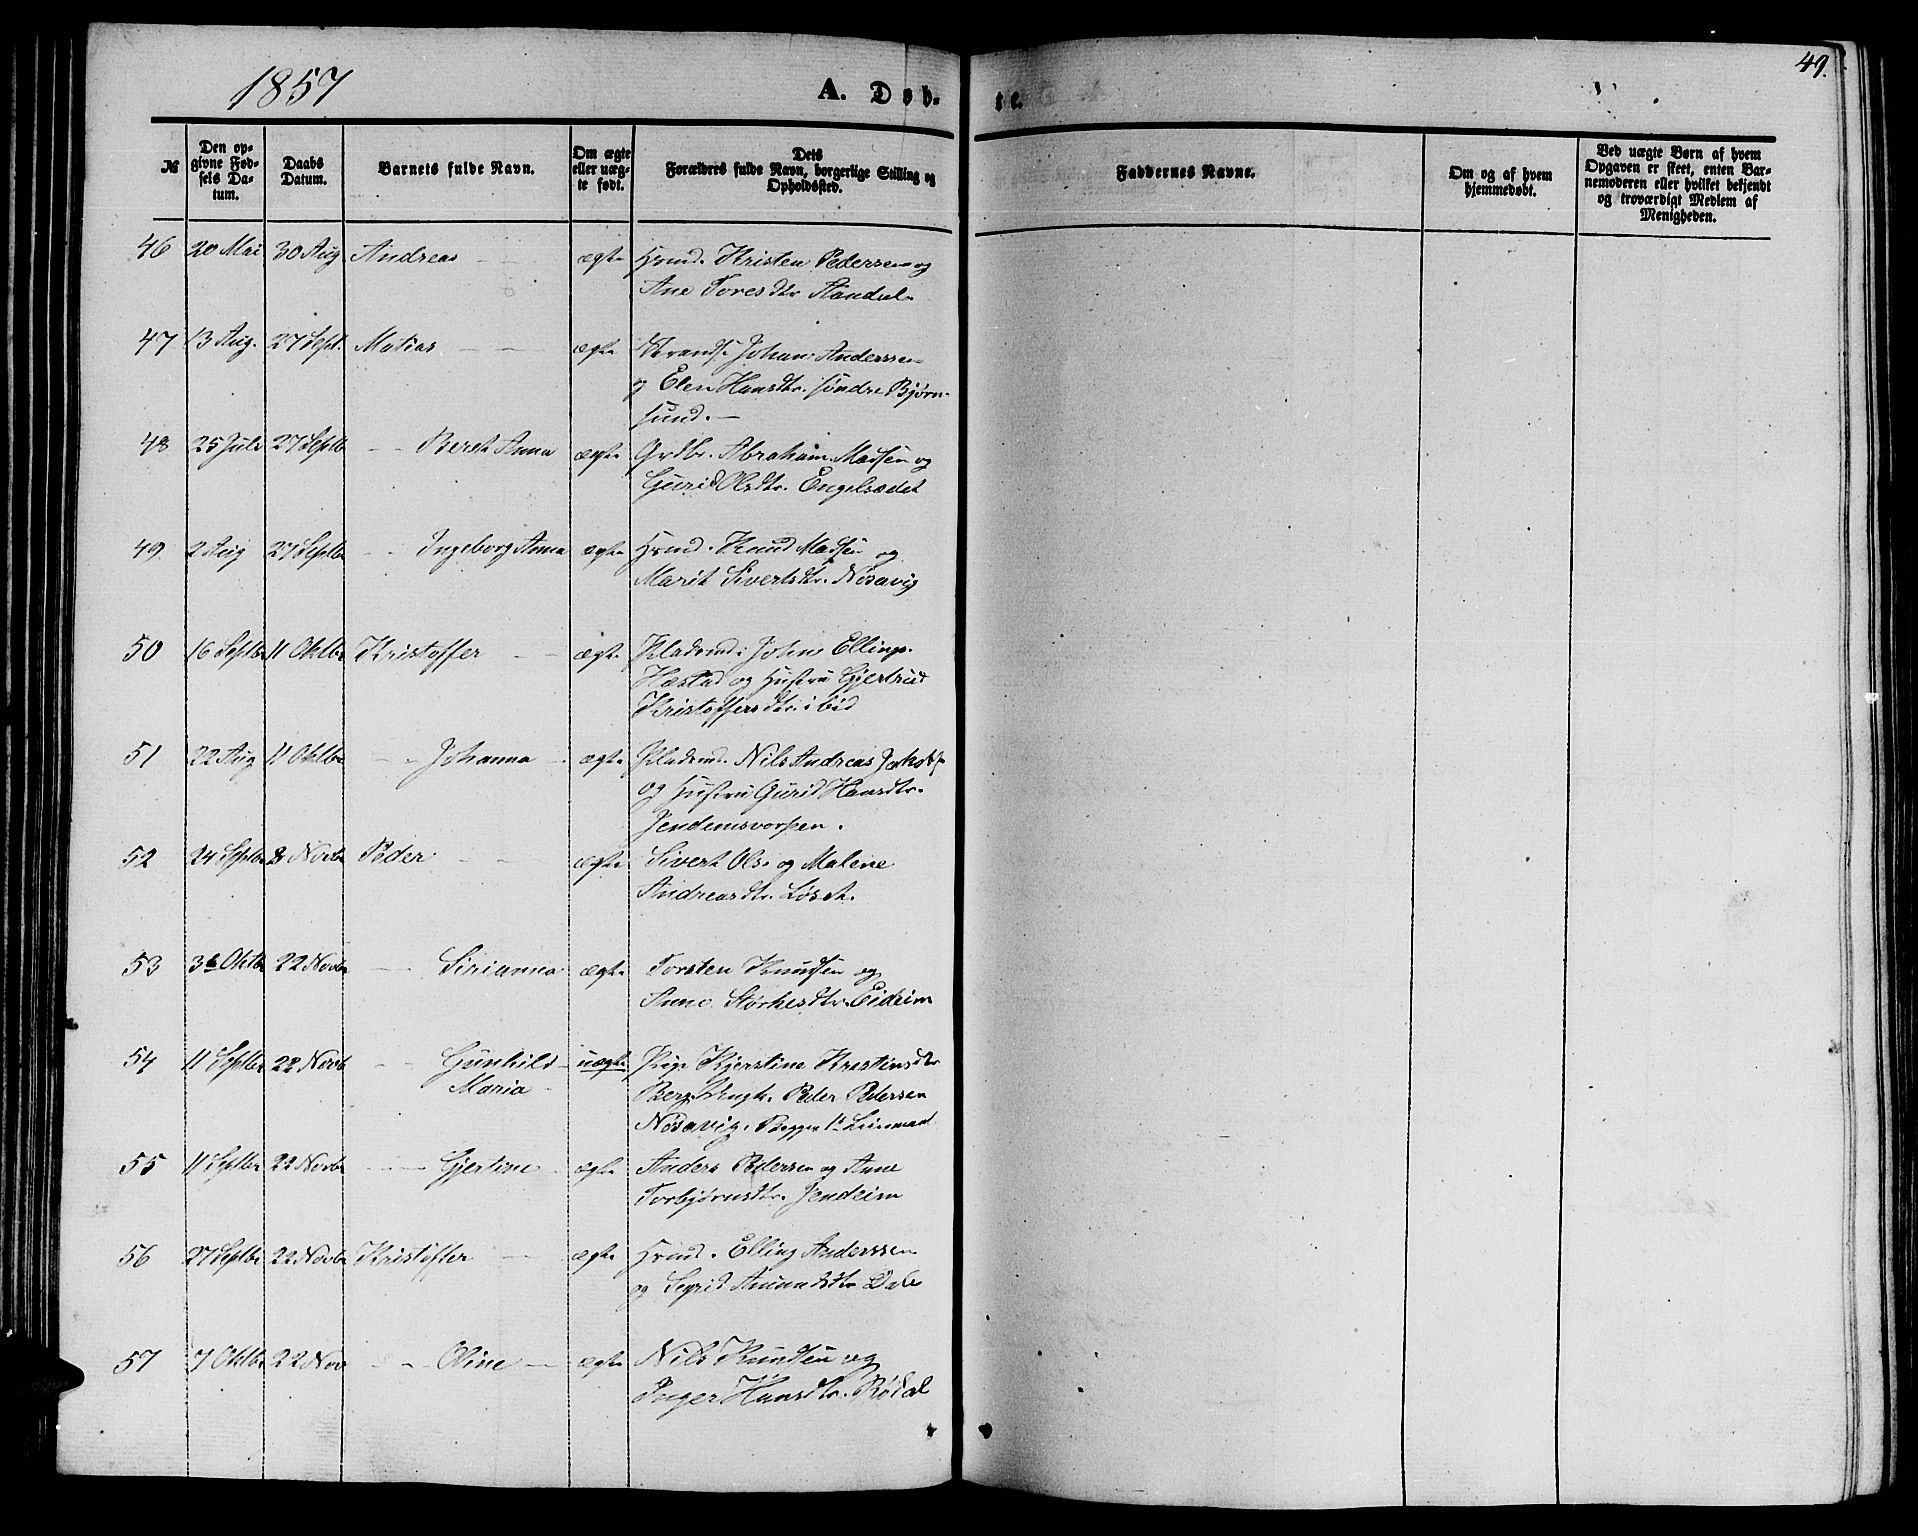 1857
A. Døb-
te.
49.
№
Den opgivne Fødsels Datum.
Daabs Datum.
Barnets fulde Navn.
Om ægte eller uægte født.
Dets Forældres fulde Navn, borgerlige Stilling og Opholdssted.
Faddernes Navne.
Om og af hvem hjemmedøbt.
Ved uægte Børn af hvem Opgaven er skeet, enten Barnemoderen eller hvilket bekjendt og troværdigt Medlem af Menigheden.
46 20 Mai 30 Aug Andreas ægte Hvmd. Kristen Pedersen og
Ane Toresdtr
47 13 Aug. 27 Sept. Matias ægte Johan Anderssen
og Elen Hansdtr. søndre Bjørn-
sund.
48 25 Juli 27 Septb Beret Anna ægte Grdbr. Abraham Madsen og
Gurid Olsdtr. Engelsædet
49 2 Aug 27 Septbr Ingeborg Anna ægte Hvmd. Knud Madsen og
Marit Sivertsdtr. Nøsavig
50 16 Septbr 11 Oktbr Kristoffer ægte Pladsmd: John Ellings.
Hæstad og Hustru Gjertrud
Kristoffersdtr. ibid
51 22 Aug 11 Oktbr Johanna ægte Pladsmd. Nils Andreas Jakobs
og Hustru Gurid Hansdtr.
Jendemsvorpen.
52 24 Septbr 8 Novbr Peder ægte Sivert Ols. og Malene
Andreasdtr. Løset.
53 3 Oktbr 22 Novbr Sirianna ægte Torsten Knudsen og
Anne Størkesdtr. Eideim
54 11 Septbr 22 Novb Gunhild uægte Pige Kjerstine Kristensdtr
Maria
Berg. Ungk. Peder Pedersen
Nøsavig. Begges 1te Leiermaal
55 11 Septbr 22 Novbr Gjertine ægte Anders Pedersen og Anne
Torbjørnsdtr. Jendeim
56 27 Septbr 22 Novbr Kristoffer ægte Hvmd. Elling Anderssen
og Segrid Amundsdtr Dale
57 7 Oktbr 22 Nov Oline ægte Nils Knudsen og
Inger Hansdtr. Rødal